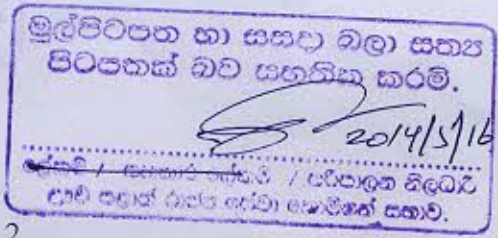 මුල්පිටපත හා සසදා බලා සත්‍ය
පිටපතක් බව සහතික කරමි.
2014/5/16
/ පරිපාලන නිලධාරි
ඌව පළාත් රාජ්‍ය සේවා කොමිෂන් සභාව.
2